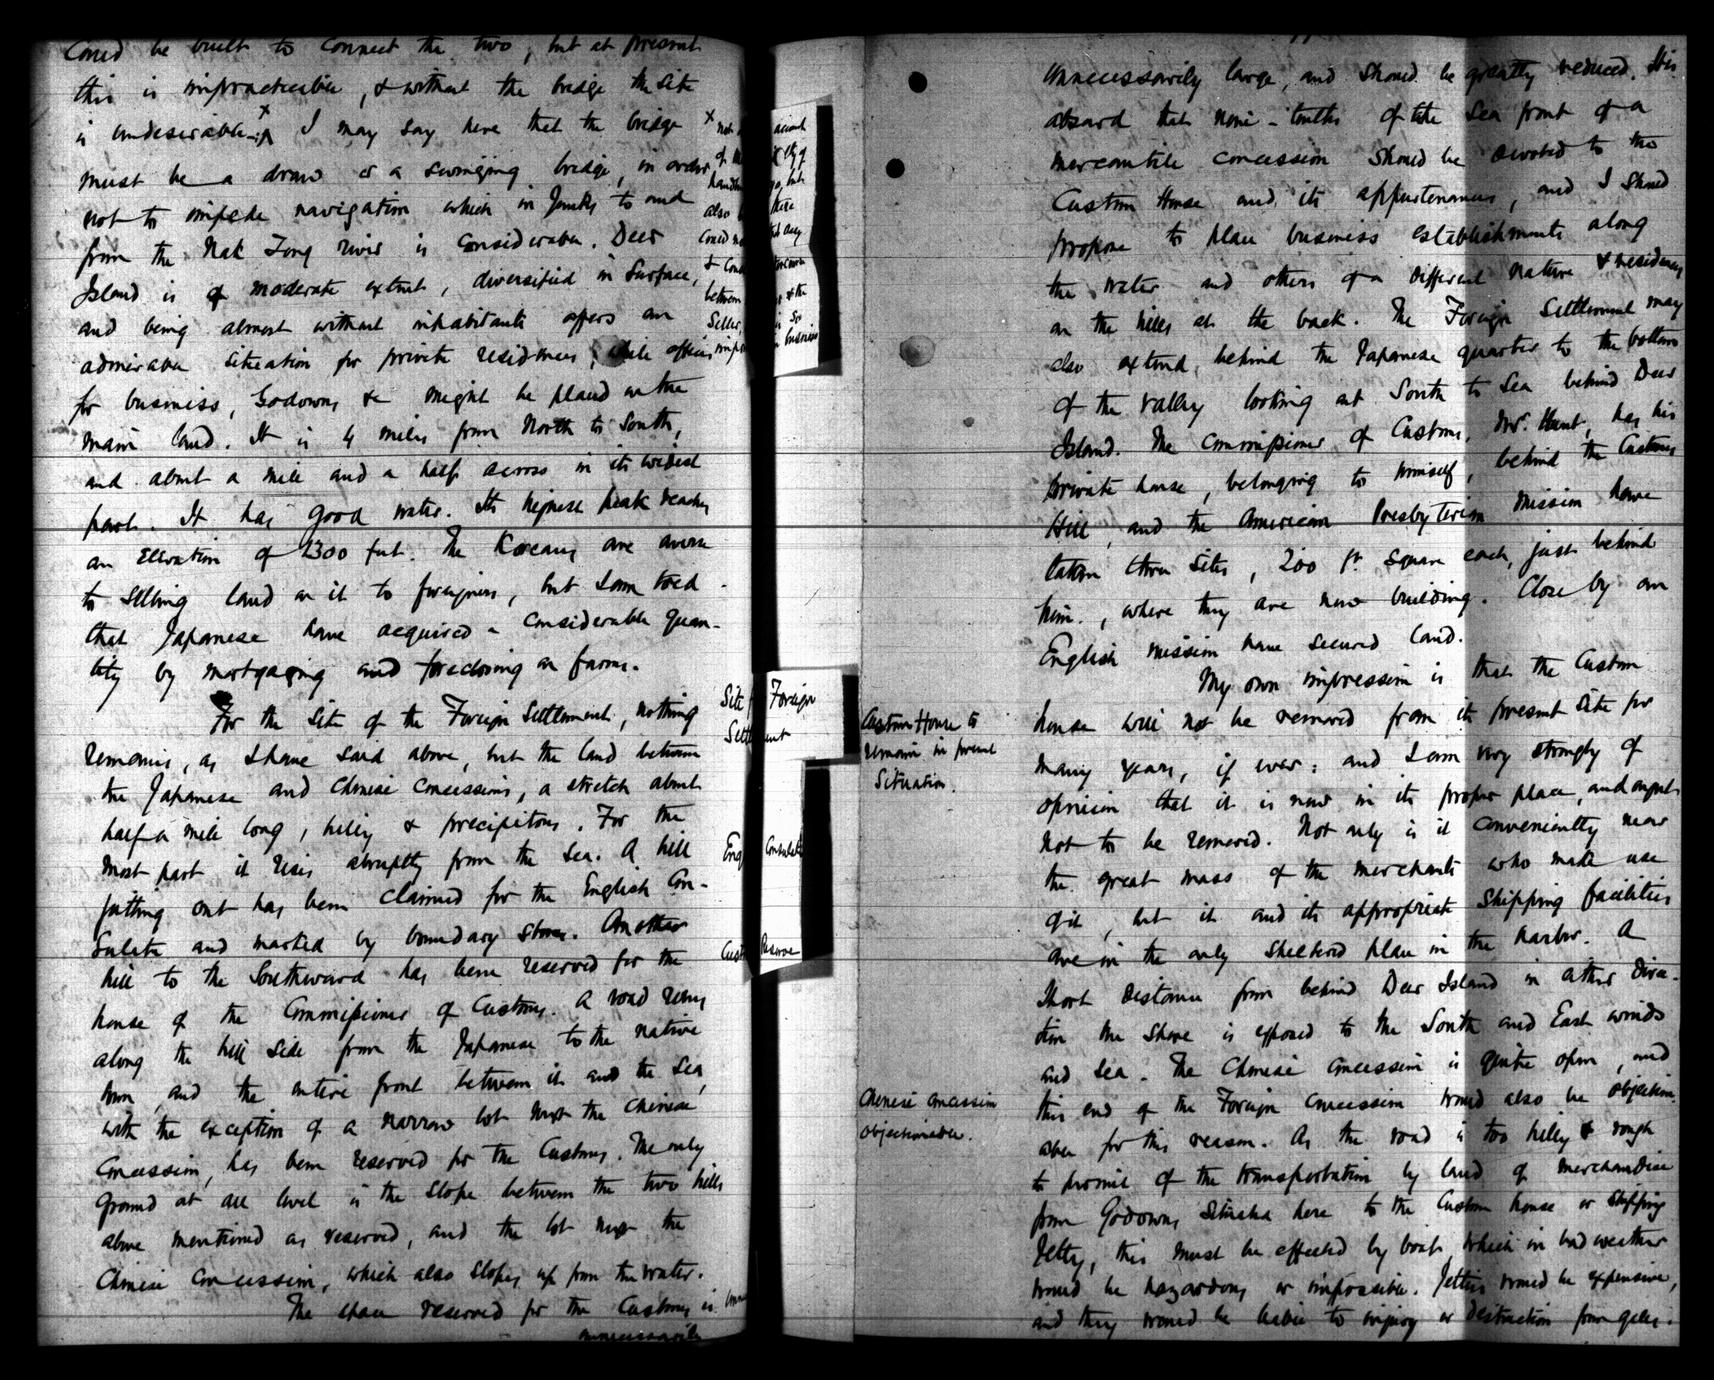 Could be built to connect the two, but at present
this is impracticable, & without the bridge the site
is undesirable. x I may say here that the bridge
must be a draw or a swinging bridge, in order
not to impede navigation which in Junks to and
from the Nak Tong river is considerable. Deer
Island is of moderate extent, diversified in surface,
and being almost without inhabitants offers an
admirable situation for private residences, while offices
for business, Godowns &c might be placed on the
main land. It is 4 miles from North to South,
and about a mile and a half across in its widest
part. It has good water. Its highest peak reaches
an elevation of 1300 feet. The Koreans are averse
to selling land on it to foreigners, but I am told
that Japanese have acquired a considerable quan-
tity by mortgaging and foreclosing on farms.
For the site of the Foreign Settlement, nothing
remains, as I have said above, but the land between
the Japanese and Chinese concessions, a stretch about
half a mile long, hilly & precipitous. For the
most part it rises abruptly from the sea. A hill
jutting out has been claimed for the English Con-
sulate and marked by boundary stones. Another
hill to the Southward has been reserved for the
house of the Commissioner of Customs. A road runs
along the hill side from the Japanese to the native
town, and the entire front between it and the sea,
with the exception of a narrow lot next the Chinese
Concession, has been reserved for the Customs. The only
ground at all level is the slope between the two hills
above mentioned as reserved, and the lot next the
Chinese Concession, which also slopes up from the water.
The space reserved for the Customs is
unnecessarily
x
also
between
Site Foreign
Settlement
Eng Consulate
Cust Reserve
unnecessarily large, and should be greatly reduced. It is
absurd that nine-tenths of the sea front of a
mercantile concession should be devoted to the
Custom House and its appurtenances, and I should
propose to place business establishments along
the water and others of a different nature & residences
on the hills at the back. The Foreign Settlement may
also extend behind the Japanese quarter to the bottom
of the valley looking out South to sea behind Deer
Island. The Commissioner of Customs, Mr. Hunt, has his
private house, belonging to himself, behind the Customs
Hill, and the American Presbyterian mission have
taken three sites, 200 ft square each, just behind
him, where they are now building. Close by an
English mission have secured land.
My own impression is that the Custom
Custom House to
remain in present
Situation.
house will not be removed from its present site for
many years, if ever: and I am very strongly of
opinion that it is now in its proper place, and ought
not to be removed. Not only is it conveniently near
the great mass of the merchants who make use
of it, but it and its appropriate shipping facilities
are in the only sheltered place in the harbor. A
short distance from behind Deer Island in either direc-
tion the shore is exposed to the South and East winds
and sea. The Chinese concession is quite open, and
Chinese concession
objectionable.
this end of the Foreign concession would also be objection-
able for this reason. As the road is too hilly & rough
to permit of the transportation by land of merchandise
from Godowns situated here to the Custom house or shipping
Jetty, this must be effected by boat, which in bad weather
would be hazardous or impossible. Jetties would be expensive,
and they would be liable to injury or destruction from gales.